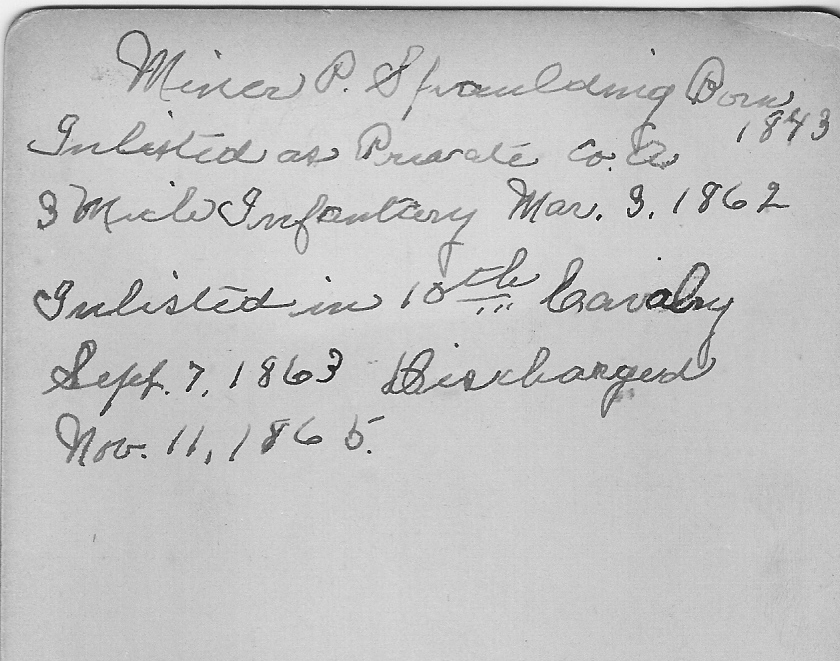 Miner P. Spraulding Born
1843
Inlisted as Private Co. A
3 Mich Infantary Mar. 3, 1862
Inlisted in 10th Cavalry
Sept. 7, 1863 Discharged
Nov. 11, 1865.